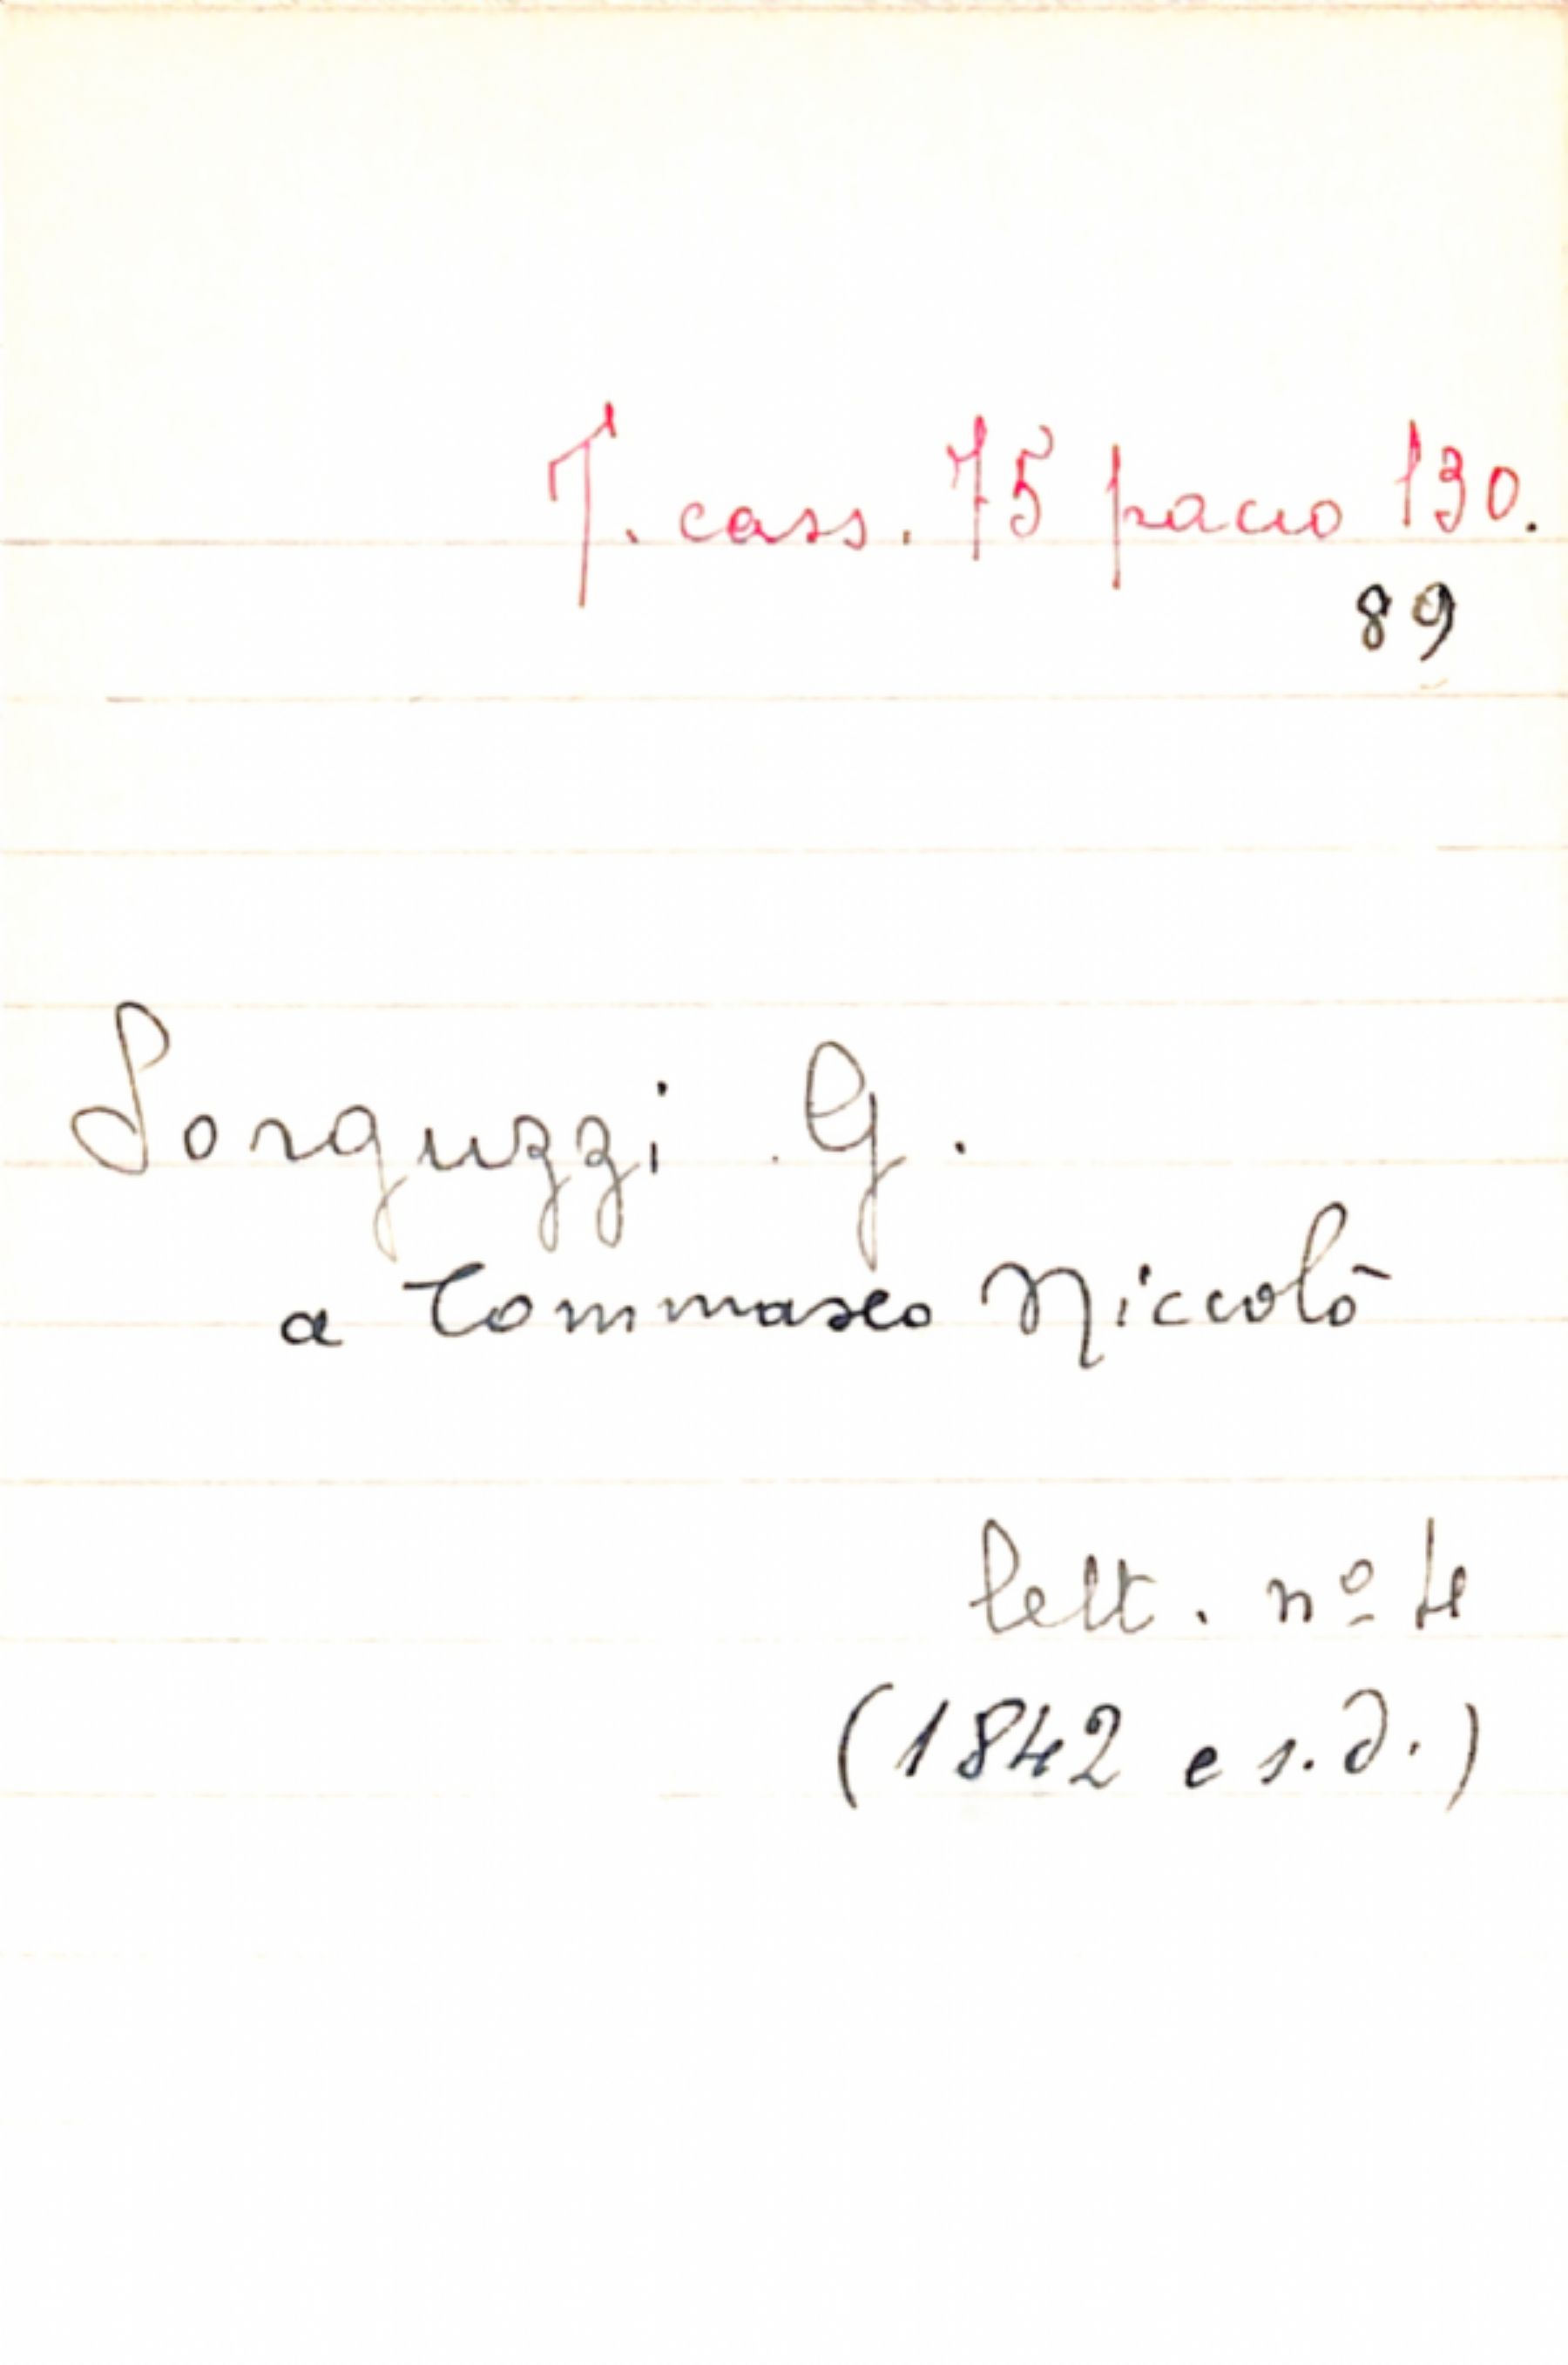 T. cass. 75 pacco 130.
89
Sorguzzi G.
a Tommaseo Niccolò
lett. nº 4
(1842 e s.d.)